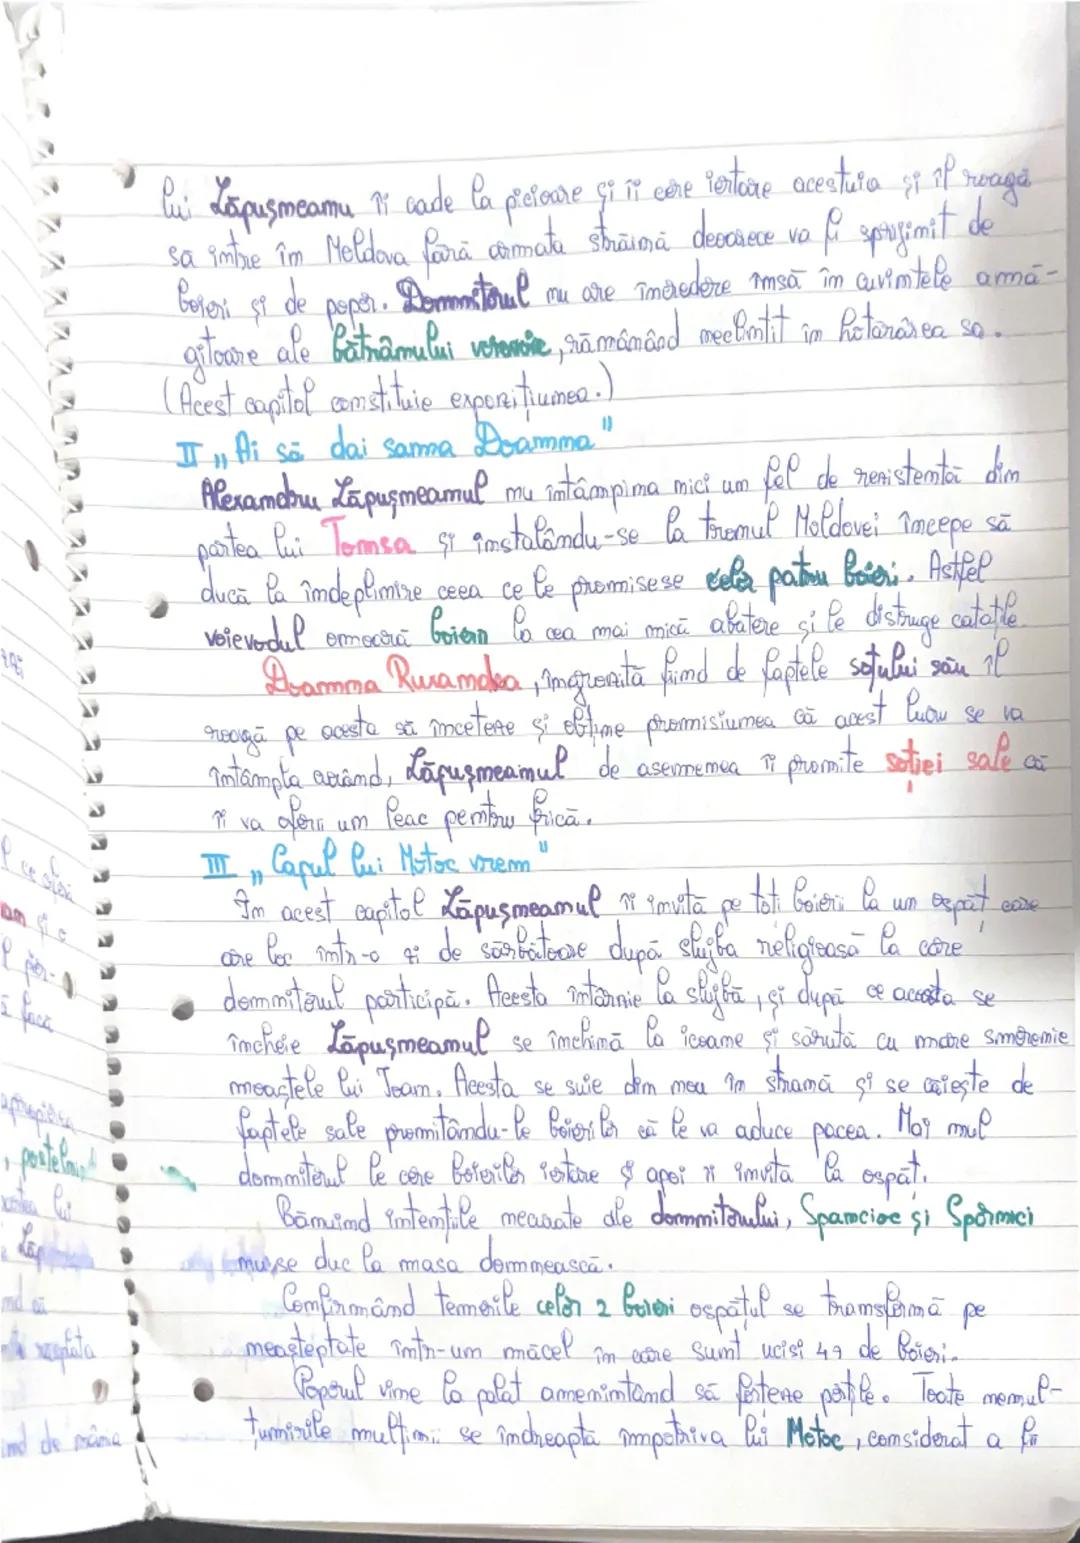 lui Lăpușneanu îi cade la picioare și îi cere iertare acestuia și îl roagă
să intre în Moldova fără armata străină deoarece va fi sprijinit de
boieri și de popor. Domnitorul nu are încredere însă în cuvintele amă-
gitoare ale bătrânului vornic, rămânând neclintit în hotărârea sa.
(Acest capitol constituie expozițiunea.)
II „Ai să dai sama Doamna"
Alexandru Lăpușneanul nu întâmpina nici un fel de rezistentă din
partea lui Tomsa și instalându-se la tronul Moldovei începe să
ducă la îndeplinire ceea ce le promisese celor patru boieri. Astfel
voievodul omoară boierii la cea mai mică abatere și le distruge
Doamna Ruxandra, îngrozită fiind de faptele soțului său îl
roagă pe acesta să înceteze și obține promisiunea că acest lucru se va
întâmpla curând, Lăpușneanul de asemenea îi promite soției sale că
îi va oferi un leac pentru frică.
III „Capul lui Motoc vrem"
În acest capitol Lăpușneanul îi invită pe toti boierii la un ospat care
are loc într-o zi de sărbătoare după slujba religioasă la care
domnitorul participă. Acesta întârzie la slujbă, și după ce aceasta se
încheie Lăpușneanul se închină la icoane și sărută cu mare smerenie
moaștele lui Ioan. Acesta se suie din nou în strană și se căiește de
faptele sale promitându-le boierilor că le va aduce pacea. Mai mul
domnitorul le cere boierilor iertare și apoi îi invită la ospăt.
Bănuind intențiile necurate ale domnitorului, Spancioc și
nu se duc la masa domnească.
Confirmând temerile celor 2 boieri ospătul se transformă pe
neașteptate într-un măcel în care sunt uciși 49 de boieri.
Poporul vine la palat amenintand să porțile. Toate nemul-
tumirile mulțimii se îndreaptă împotriva lui Motoc, considerat a fi